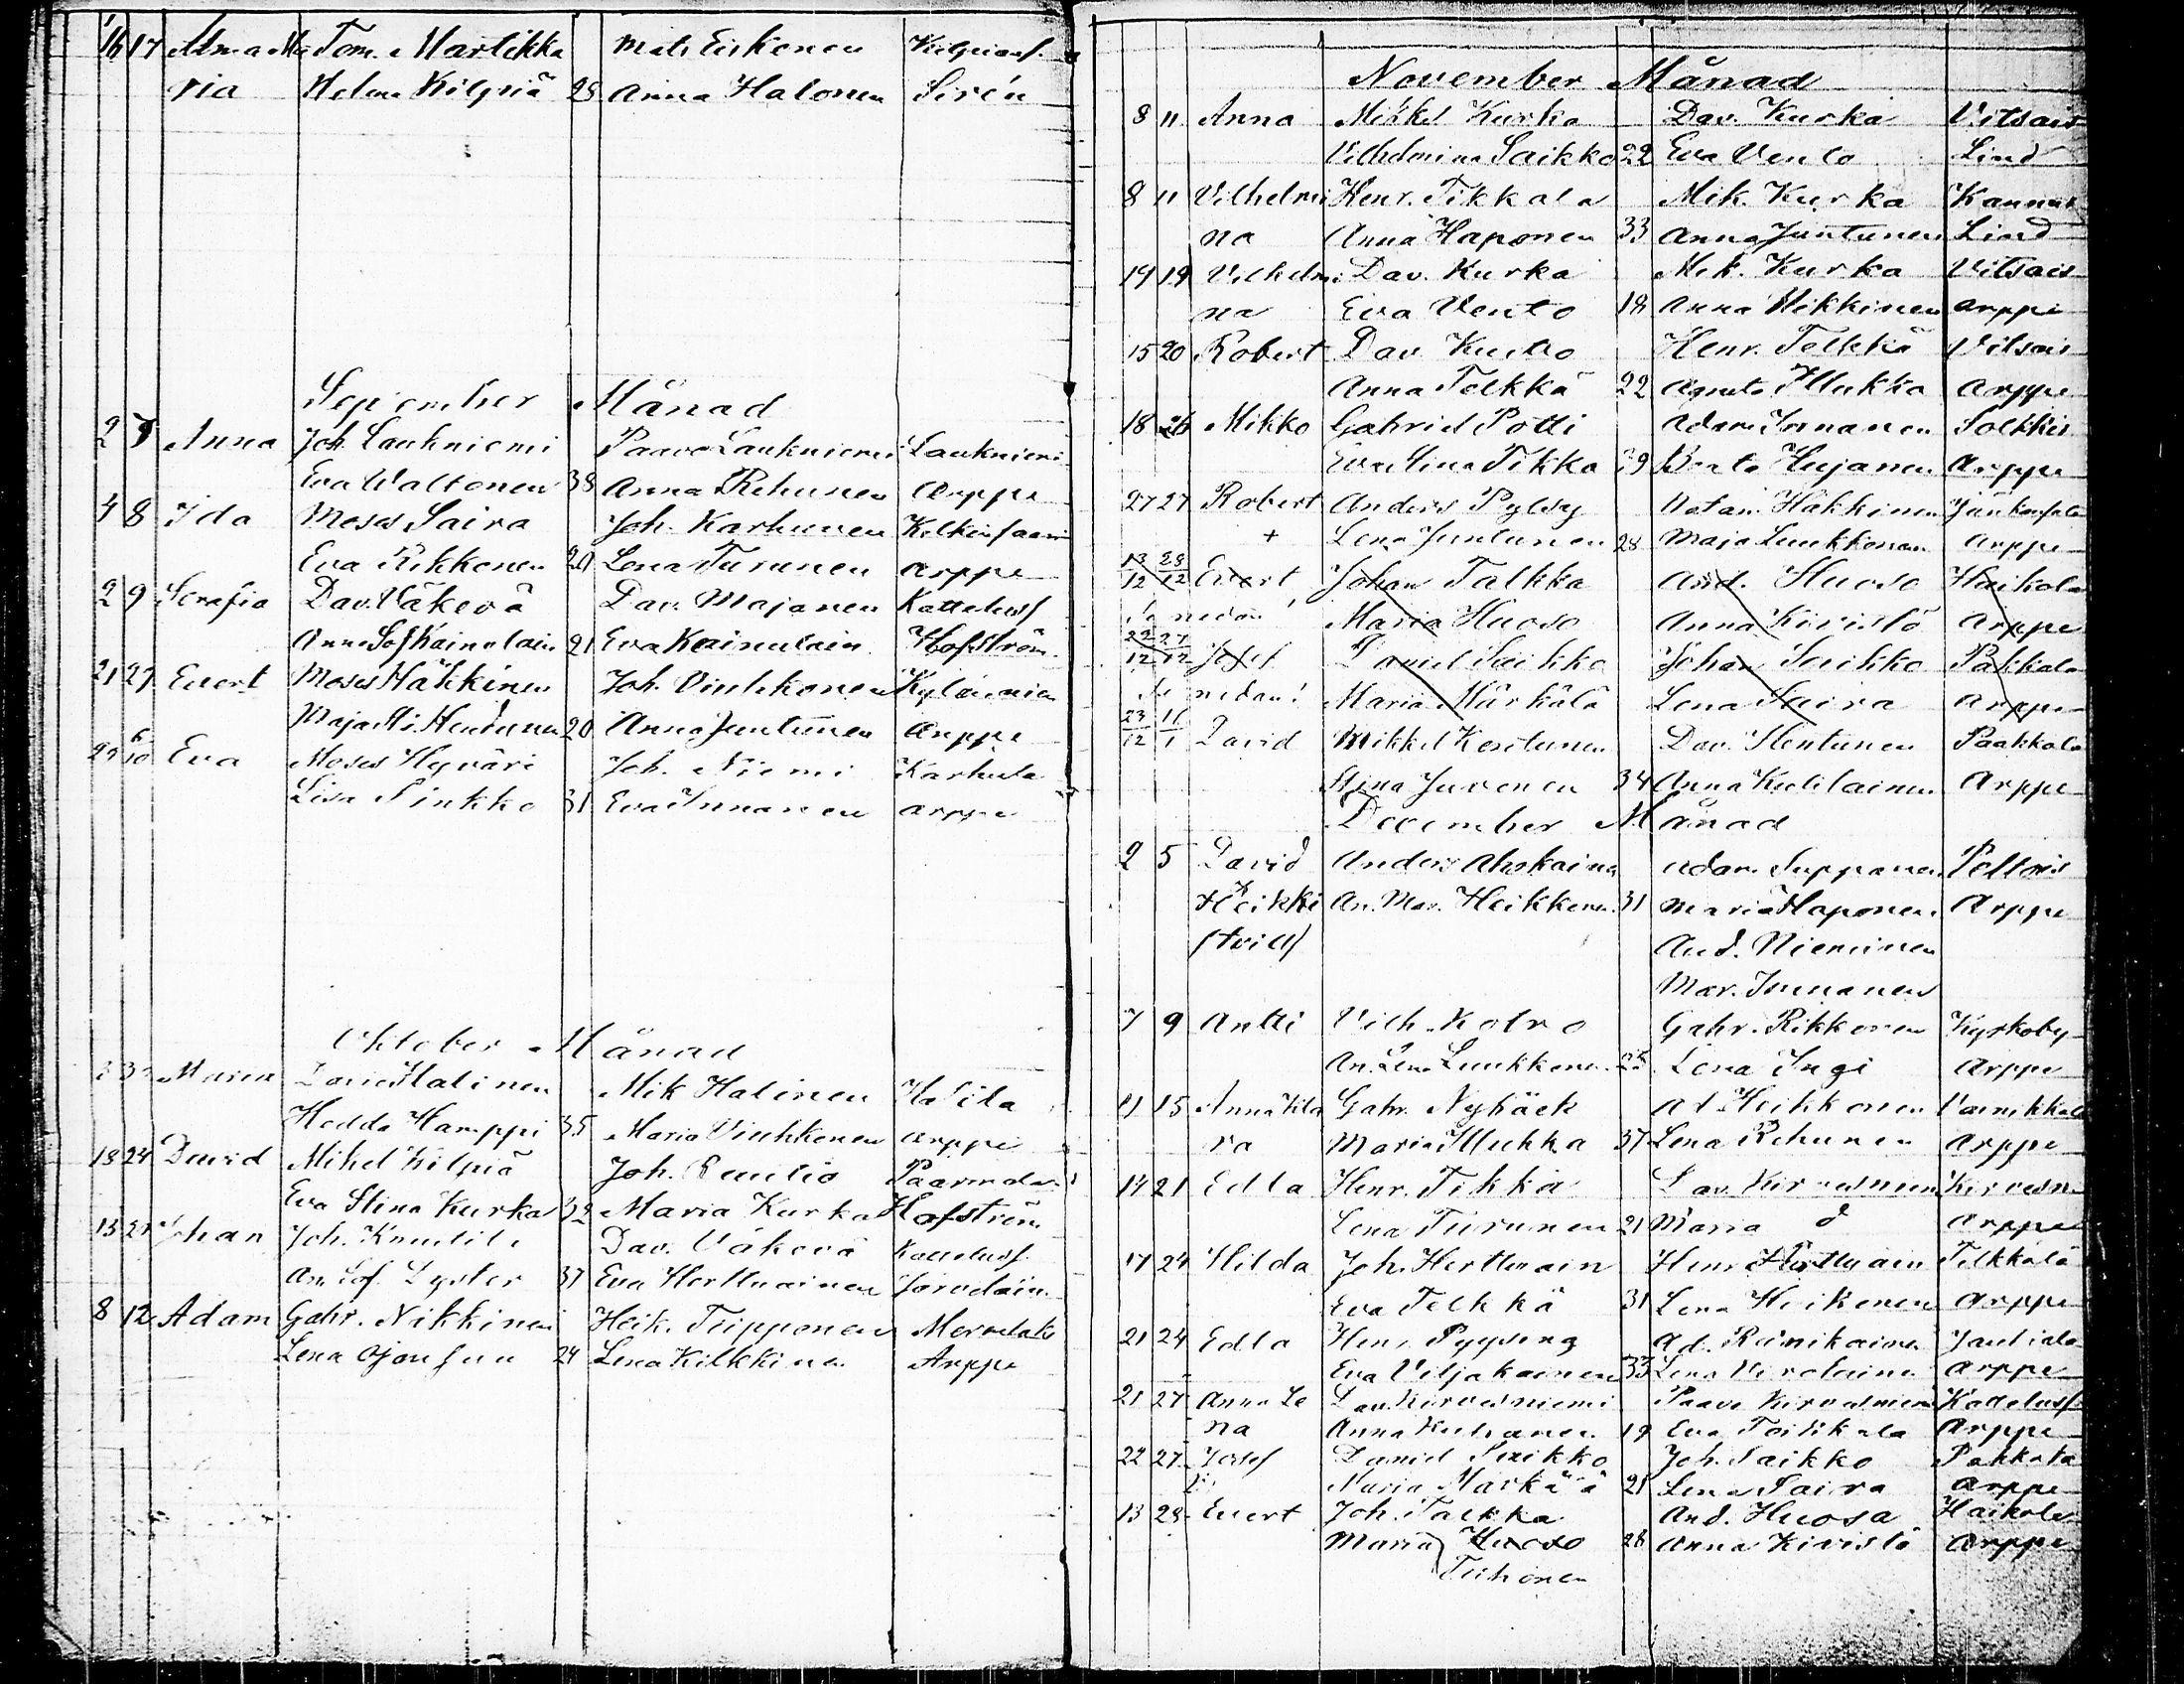 16 17 Alma Ma Tom. Martikka Mats Eiskonen
ria Helena Kilpiä 25 Anna Halonen Sirén
September Månad
2 Anna Joh. Laukniemi Paavo Laukniemi Laukniemi
Eva Waltonen 38 Anna Rehunen Arppe
4 8 Ida Moses Saira Joh. Karhunen
Eva Rikkonen 20 Lena Turunen Arppe
2 9 Serafia Dav. Väkevä Dav. Majanen Kattelusf
Anna Sof Kainolain 21 Eva Kainulain Hofström
21 27 Evert Moses Häkkinen Joh. Vinhkonen
Maja 20 Anna Juntunen Arppe
29 6/10 Eva Moses Hyväri Joh. Niemi Karhula
Lisa Sinkko 31 Eva Innanen Arppe
Oktober Månad
Maria David Halinen Mik Halinen Halila
Hedda Hamppi 35 Maria Vinhkonen Arppe
18 24 David Mikel Kilpiä Joh. Puutio
Eva Stina Kurka 32 Maria Kurka Hofström
Johan Joh. Dav. Väkevä Kattelusf.
An. Sof. 37 Eva Herttuainen
8 12 Adam Gabr. Nikkinen Heik. Tripponen
Lena 24 Lena Kilkkinen Arppe
November Månad
8 11 Anna Mikkel Kurka Dav. Kurka Vitsais
Vilhelmina Saikko 22 Eva Vento Lind
8 11 Vilhelmi Henr. Tikkala Mik. Kurka Kannus
na Anna Haponen 33 Anna Juntunen Lind
14 19 Vilhelmi Dav. Kurka Mik. Kurka Vitsais
na Eva Vento 18 Anna Nikkinen Arppe
15 20 Robert Dav. Henr. Telkkä Vitsais
Anna Telkkä 22 Agneta Mukka Arppe
18 26 Mikko Gabriel Potti Adam Innanen Solkkis
Eva Stina Tikka 29 Beata Hujanen Arppe
27 27 Robert Anders Pylsy Natan. Häkkinen
+ Lena Juntunen 28 Maja Luukkonen Arppe
13/12 28/12 Evert Johan Talkka And. Huoso Haikola
Se nedan! Maria Huoso Anna Kivistö Arppe
22/12 27/12 Josef Daniel Saikko Johan Saikko Pakkala
Se nedan! Maria Märkälä Lena Saira Arppe
23/12 11/1 David Mikkel Kentunen Dav. Hentunen Paakkola
Stina Juvonen 34 Anna Arppe
December Månad
2 5 David Anders Ahokainen Adam Supponen Peltois
& Heikki An. Mar. Heikkonen 31 Maria Haponen Arppe
And. Nieminen
Mar. Innanen
7 9 Antti Vilh. Kotro Gabr. Rikkonen Kyrkoby
An. Lena Luukkonen 25 Lena Ingi Arppe
11 15 Anna Kla Gabr. Nybäck Ad. Heikkonen Vainikkala
ra Maria Mukka 37 Lena Rehunen Arppe
14 21 Edla Henr. Tikka Dav. Kirvesniemi Kirvesn
Lena Turunen 21 Maria d Arppe
17 24 Hilda Joh. Herttuain Henr. Herttuain Telkkälä
Eva Telkkä 31 Lena Heikonen Arppe
21 24 Edla Henr. Pyysing Ad. Jantiala
Eva Viljakainen 33 Lena Virolainen Arppe
21 27 Anna Le Dav. Kirvesniemi Paavo Kirvesniemi Kattelusf
na Anna 19 Eva Toikkala Arppe
22 27 Josef Daniel Saikko Joh. Saikko Pakkala
Maria Märkälä 21 Lena Saira Arppe
13 28 Evert Joh. Talkka And. Huosa Haikola
Maria Huoso 28 Anna Kivistö Arppe
Tiihonen